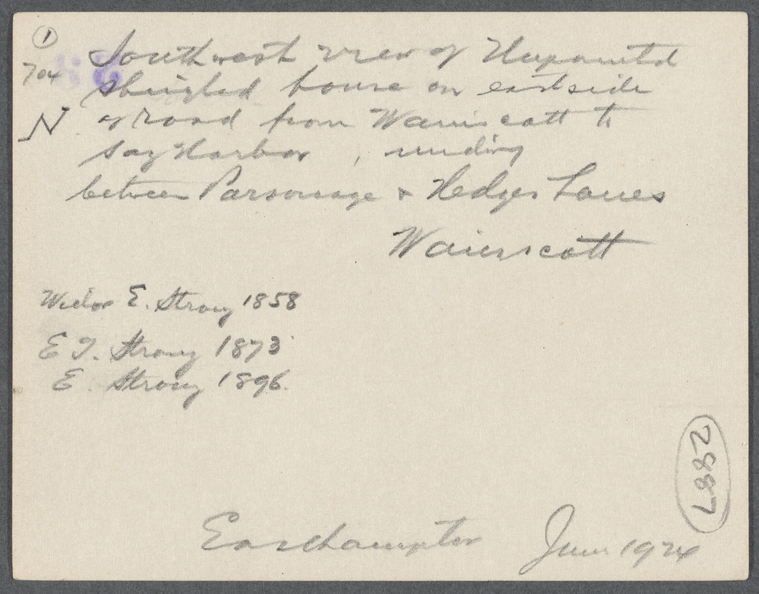 1
704 Southwest view of Unpainted
shingled house on eastside
N of road from Wainscott to
Sag Harbor, ending
between Parsonage + Hedges Lanes
Wainscott
Widow E. Strong 1858
E T. Strong 1873
E. Strong 1896.
2887
Easthampton June 1924